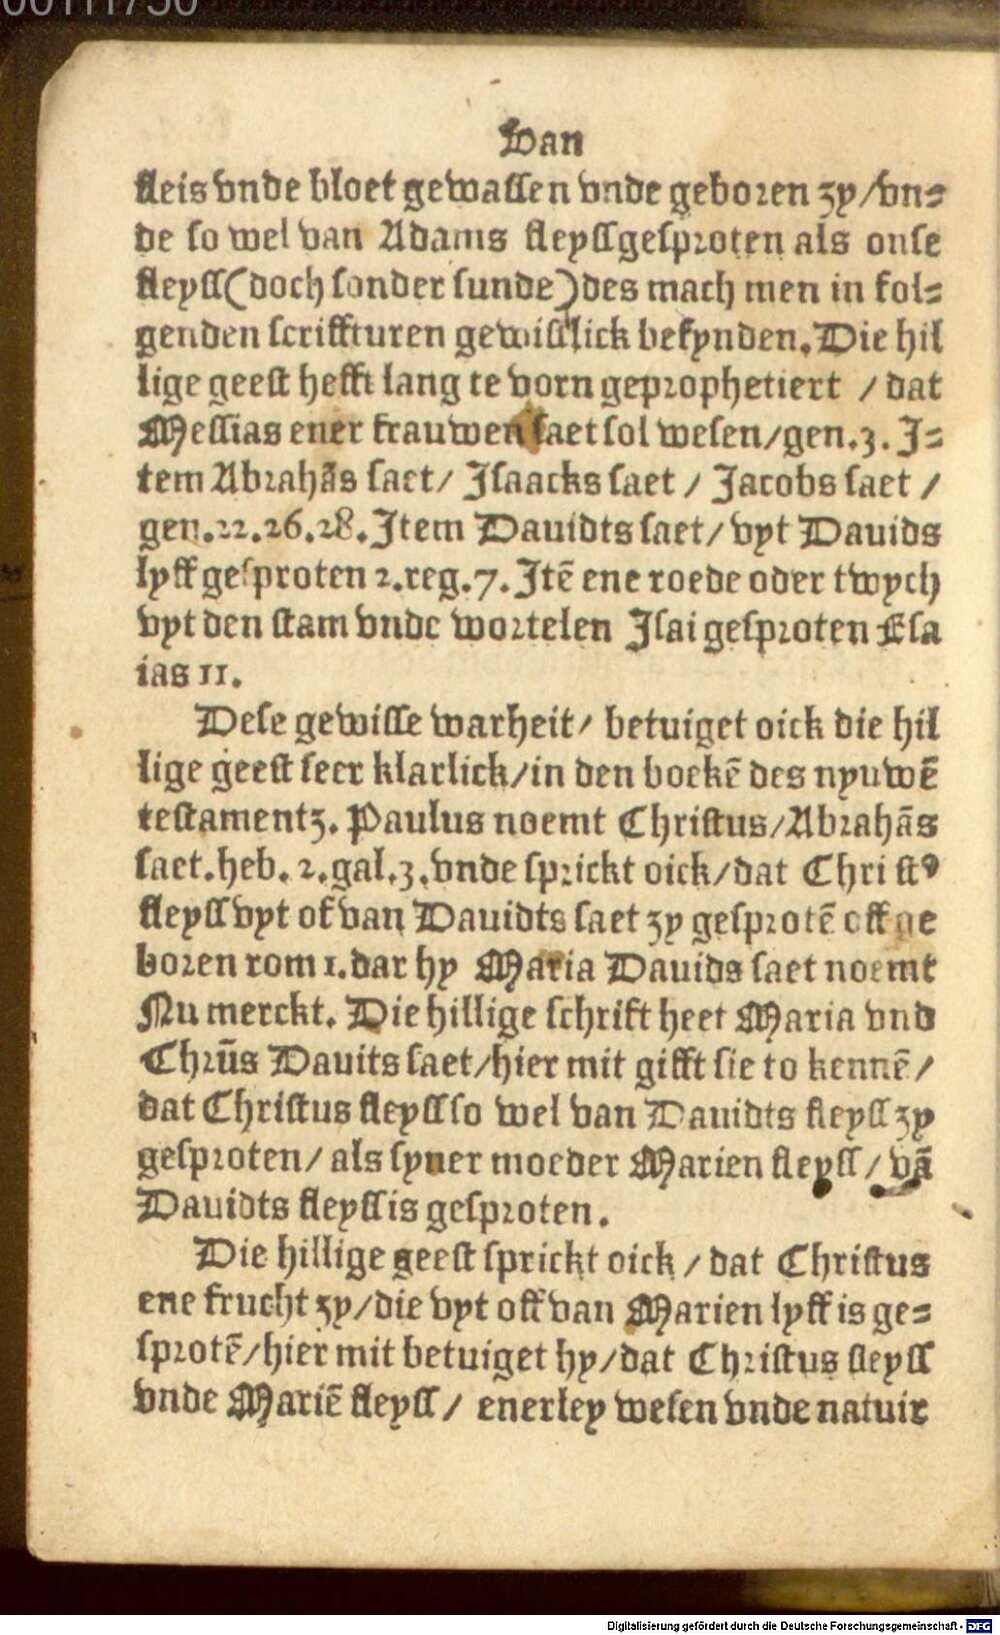 Van
fleis vnde bloet gewassen vnde geboren zy/vn=
de so wel van Adams fleyss gesproten als onse
fleyss (doch sonder sunde) des mach men in fol=
genden scriffturen gewisslick befynden. Die hil
lige geest hefft lang te vorn geprophetiert / dat
Messias ener frauwen saet sol wesen/gen.3. J=
tem Abrahãs saet/ Jsaacks saet / Jacobs saet /
gen.22.26.28. Jtem Dauidts saet/ vyt Dauids
lyff gesproten 2.reg.7. Jtē ene roede oder twych
vyt den stam vnde wortelen Jsai gesproten Esa
ias 11.
Dese gewisse warheit/ betuiget oick die hil
lige geest seer klarlick/in den boekē des nyuwē
testamentz. Paulus noemt Christus/Abrahãs
saet.heb. 2.gal.3.vnde sprickt oick/dat Christꝰ
fleyss vyt of van Dauidts saet zy gesprotē off ge
boren rom 1.dar hy Maria Dauids saet noemt
Nu merckt. Die hillige schrift heet Maria vnd
Chrūs Dauits saet/hier mit gifft sie to kennē/
dat Christus fleyss so wel van Dauidts fleyss zy
gesproten/ als syner moeder Marien fleyss/ vã
Dauidts fleyss is gesproten.
Die hillige geest sprickt oick / dat Christus
ene frucht zy/die vyt off van Marien lyff is ge=
sprotē/hier mit betuiget hy/dat Christus fleyss
vnde Mariē fleyss/ enerley wesen vnde natuir
Digitalisierung gefördert durch die Deutsche Forschungsgemeinschaft - DFG